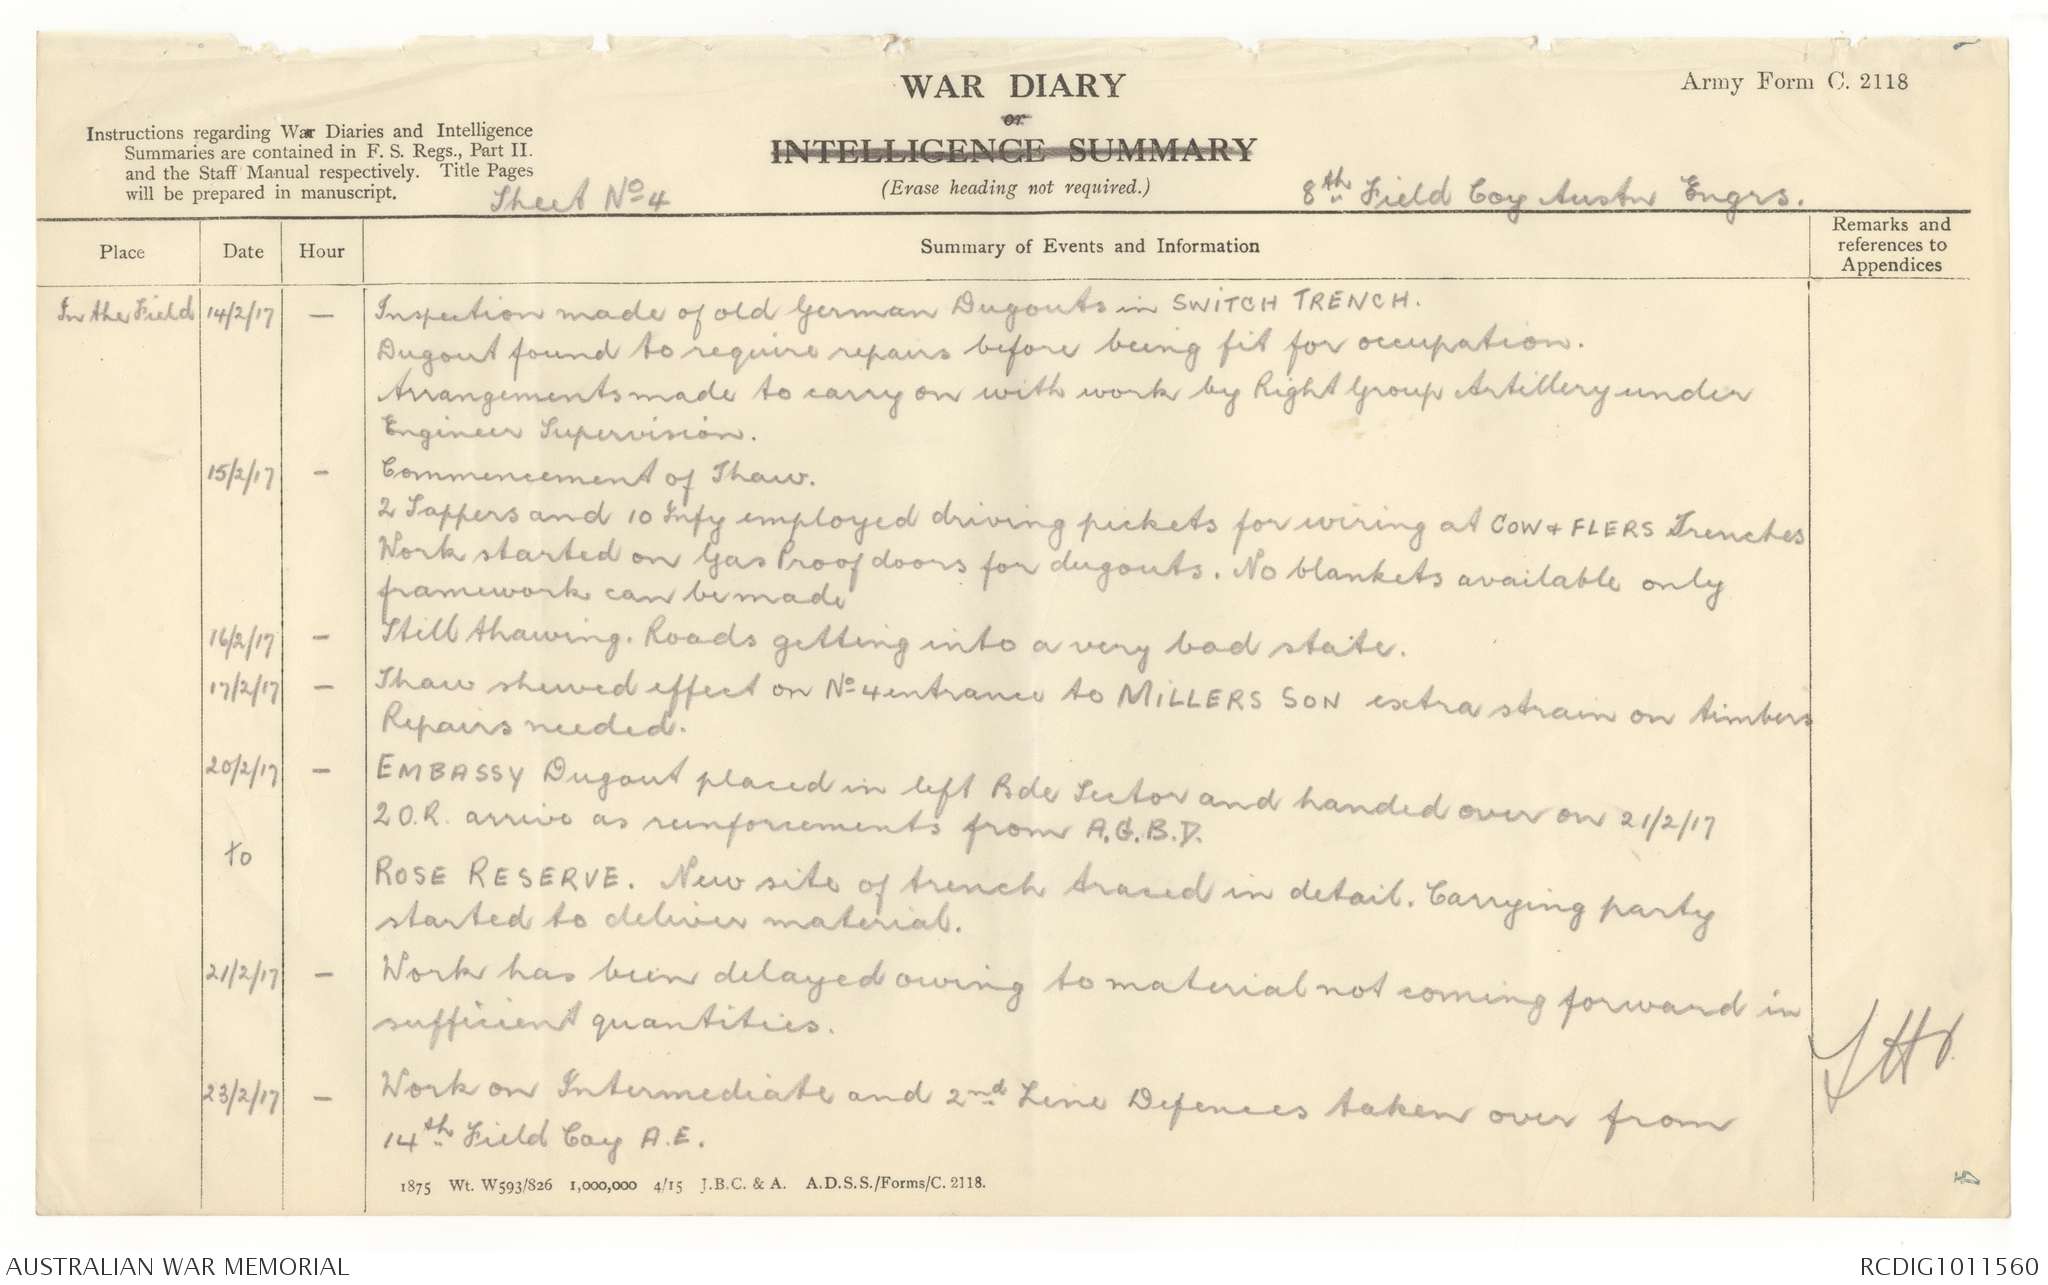 WAR DIARY
or
INTELLIGENCE SUMMARY
(Erase heading not required.)
Army Form C. 2118
Instructions regarding War Diaries and Intelligence
Summaries are contained in F. S. Regs., Part II.
and the Staff Manual respectively. Title Pages
will be prepared in manuscript.
Sheet No 4
8th Field Coy Austn Engrs.
Place Date Hour Summary of Events and Information Remarks and references to Appendices
In the Field 14/2/17 — Inspection made of old German Dugouts in SWITCH TRENCH.
Dugout found to require repairs before being fit for occupation.
Arrangements made to carry on with work by Right Group Artillery under
Engineer Supervision.
15/2/17 — Commencement of Thaw.
2 Sappers and 10 Infy employed driving pickets for wiring at COW + FLERS Trenches
Work started on Gas Proof doors for dugouts. No blankets available only
framework can be made
16/2/17 — Still thawing. Roads getting into a very bad state.
17/2/17 — Thaw shewed effect on No 4 entrance to MILLERS SON extra strain on timbers
Repairs needed.
20/2/17 — EMBASSY Dugout placed in left Bde Sector and handed over on 21/2/17
2 O.R. arrive as reinforcements from A.G.B.D.
to
ROSE RESERVE. New site of trench traced in detail. Carrying party
started to deliver material.
21/2/17 — Work has been delayed owing to material not coming forward in
sufficient quantities.
23/2/17 — Work on Intermediate and 2nd Line Defences taken over from
14th Field Coy A.E.
1875 Wt. W593/826 1,000,000 4/15 J.B.C. & A. A.D.S.S./Forms/C. 2118.
AUSTRALIAN WAR MEMORIAL
RCDIG1011560